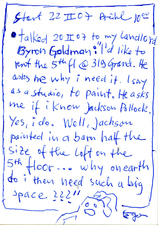 Start 22 II 07
• talked 20 II 07 to my landlord
Byron Goldman: "I'd like to
rent the 5th fl @ 319 Grand. He
asks me why i need it. I say
as a studio, to paint. He asks
me if i know Jackson Pollock.
Yes, i do. Well, Jackson
painted in a barn half the
size of the loft on the
5th floor... why on earth
do i then need such a big
space ???"